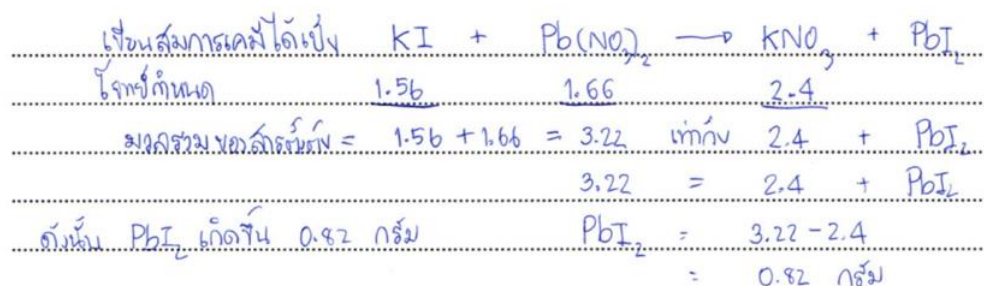 เขียนสมการเคมีได้เป็น KI + Pb(NO₃)₂ → KNO₃ + PbI₂
โจทย์กำหนด 1.56 1.66 2.4
มวลรวมของสารตั้งต้น = 1.56 + 1.66 = 3.22 เท่ากับ 2.4 + PbI₂
3.22 = 2.4 + PbI₂
ดังนั้น PbI₂ เกิดขึ้น 0.82 กรัม PbI₂ = 3.22 - 2.4
= 0.82 กรัม